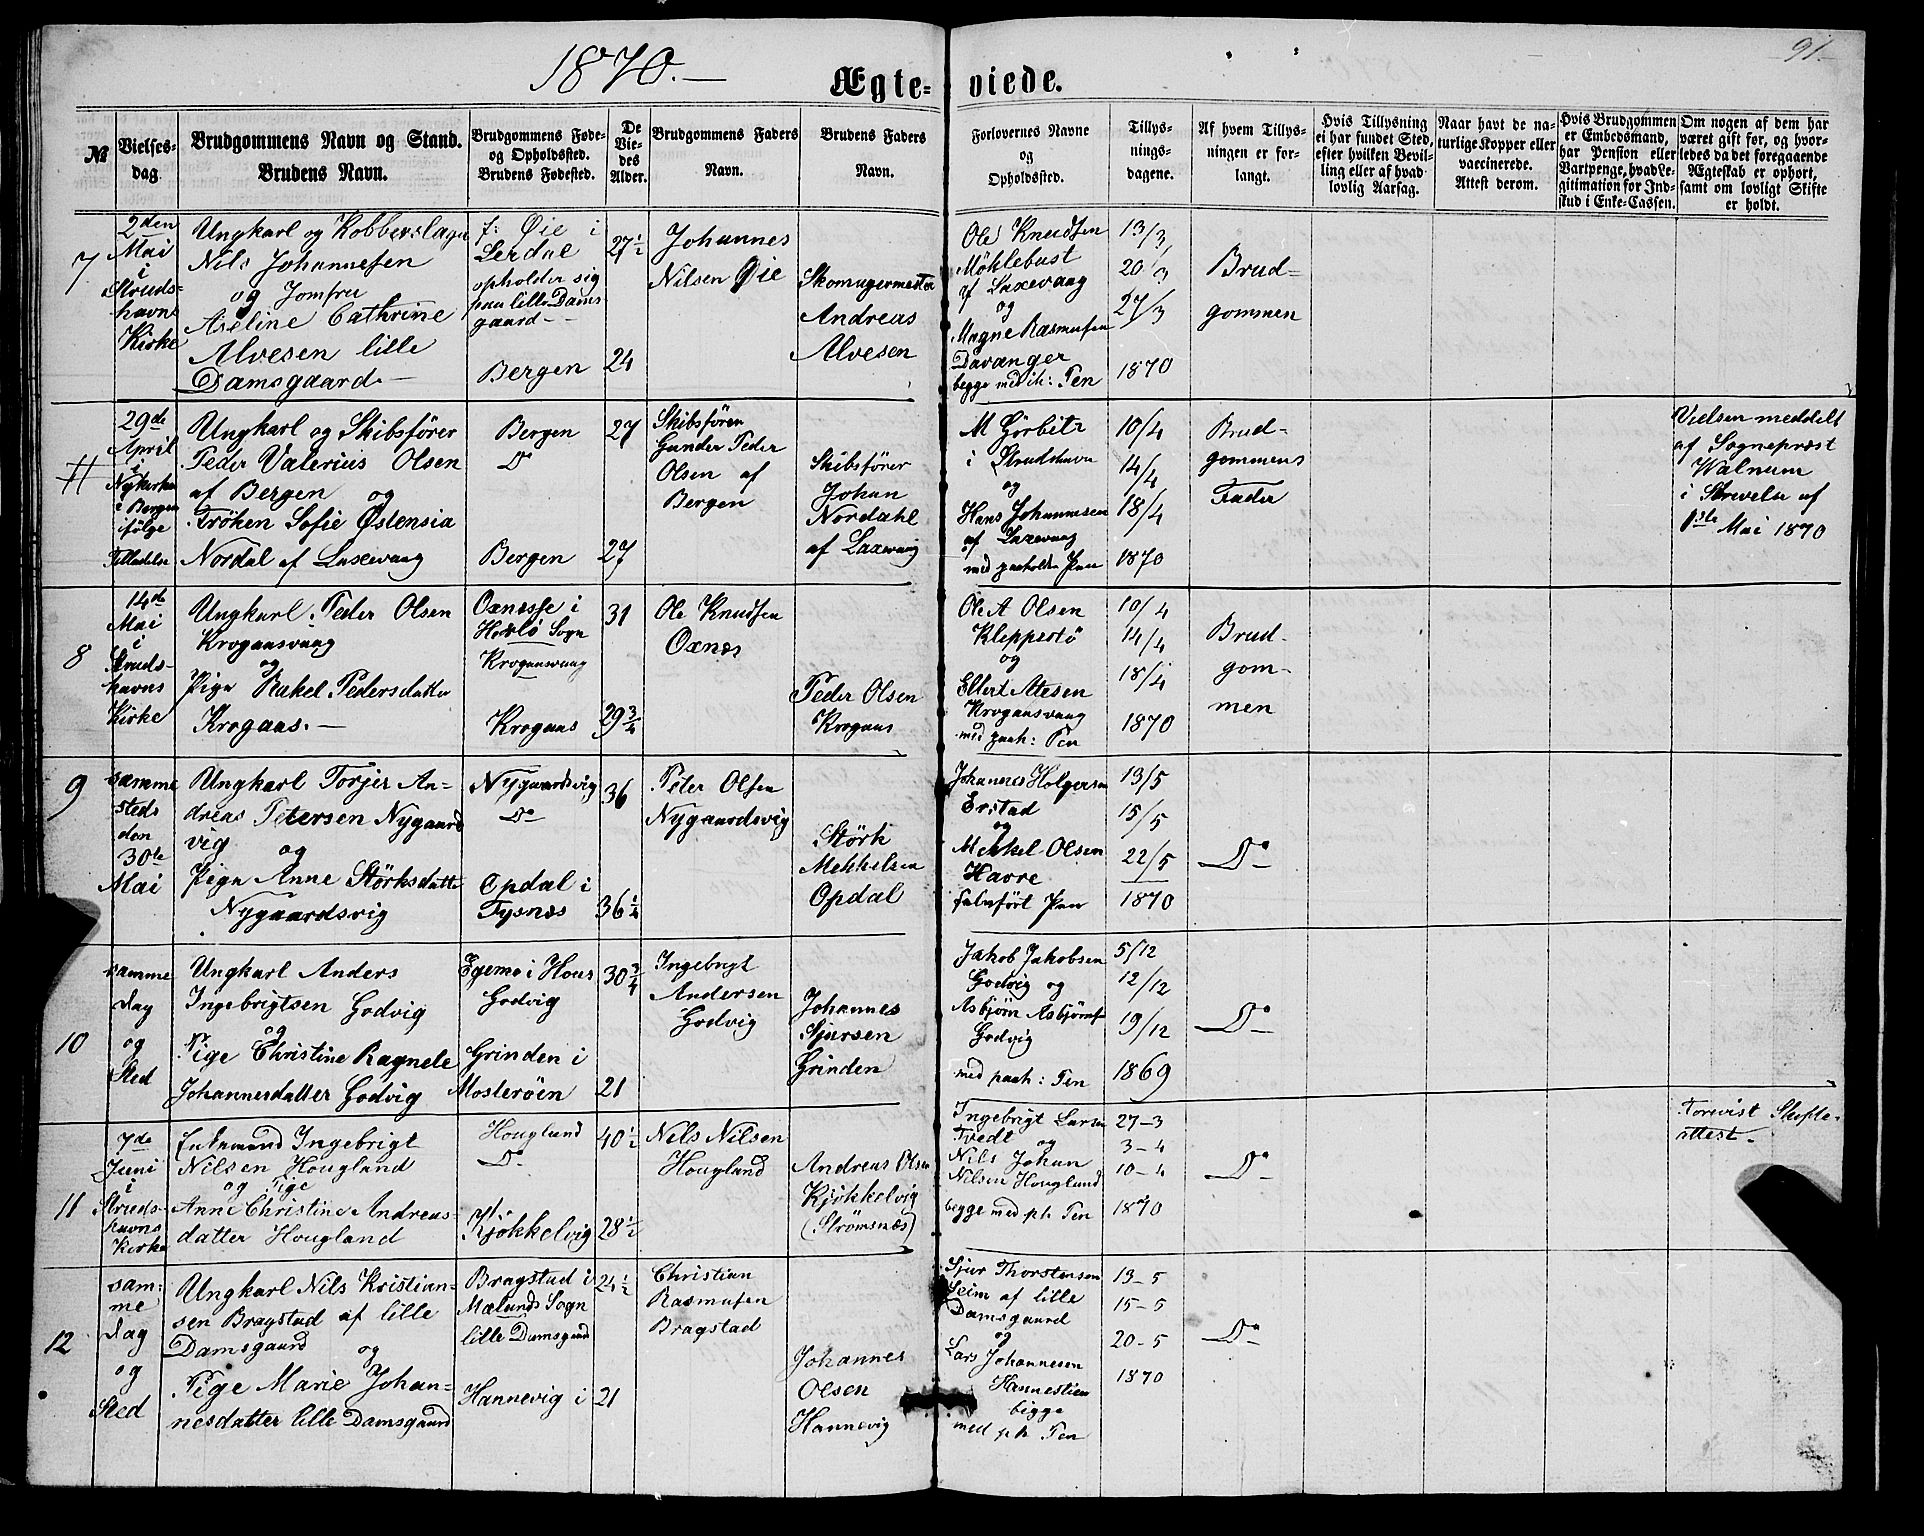 1870.—
91.
Ægte-
viede.
№
Vielses-
dag.
Brudgommens Navn og Stand.
Brudens Navn.
Brudgommens Føde-
og Opholdssted.
Brudens Fødested.
De
Vie-
des
Alder.
Brudgommens Faders
Navn.
Brudens Faders
Navn.
Forlovernes Navne
og
Opholdssted.
Tillys-
nings-
dagene.
Af hvem Tillys-
ningen er for-
langt.
Hvis Tillysning
ei har fundet Sted,
efter hvilken Bevil-
ling eller af hvad
lovlig Aarsag.
Naar havt de na-
turlige Kopper eller
vaccinerede.
Attest derom.
Hvis Brudgommen
er Embedsmand,
har Pension eller
Vartpenge, hvad Le-
gitimation for Ind-
skud i Enke-Cassen.
Om nogen af dem har
været gift før, og hvor-
ledes da det foregaaende
Ægteskab er ophørt,
samt om lovligt Skifte
er holdt.
7
2den
Mai
i
Struds-
havns
Kirke
Ungkarl og Kobberslager
Nils Johannesen
og Jomfru
Aseline Cathrine
Alvesen lille
Damsgaard.—
f: Øie i
Lerdal
opholder sig
paa lille Dams
gaard—
Bergen
27½
24
Johannes
Nilsen Øie
Skomagermester
Andreas
Alvesen
Ole Knudsen
Møhlebust
af Laxevaag
og
Magne Rasmusen
Davanger
begge med ih: Pen
13/3
20/3
27/3
1870
Brud-
gommen
29de
April
i
Nykirken
i Bergen
ifølge
Tilladelse
Ungkarl og Skibsfører
Peder Valerius Olsen
af Bergen og
Frøken Sofie Østensia
Nordal af Laxevaag
Bergen
Do
Bergen
27
27
Skibsfører
Gunder Peder
Olsen af
Bergen
Skibsfører
Johan
Nordahl
af Laxevaag
M Görbitz
i Strudshavn
og
Hans Johannesen
af Laxevaag
med paaholden Pen
10/4
14/4
18/4
1870
Brud-
gommens
Fader
Vielsen meddelt
af Sognepræst
Walnum
i Skrivelse af
1ste Mai 1870
8
14de
Mai
i
Struds-
havns
Kirke
Ungkarl: Peder Olsen
Krogaasvaag
og
Pige Rakel Pedersdatter
Krogaas.—
Oxnesse i
Herlø Sogn
Krogaasvaag
Krogaas
31
29¾
Ole Knudsen
Oxnes
Peder Olsen
Krogaas
Ole A Olsen
Kleppestø
og
Ellert Atesen
Krogaasvaag
med paah: Pen
10/4
14/4
18/4
1870
Brud-
gom-
men
9
samme
steds
den
30te
Mai
Ungkarl Torjer An-
dreas Petersen Nygaards
vig og
Pige Anne Størksdatter
Nygaardsvig
Nygaardsvig
Do
Opdal i
Tysnæs
36
36¼
Peter Olsen
Nygaardsvig
Størk
Mekkelsen
Opdal
Johannes Holgersen
Erstad
og
Mekkel Olsen
Havre
selvført Pen
13/5
15/5
22/5
1870
Do
10
samme
dag
og
Sted
Ungkarl Anders
Ingebrigtsen Godvig
og
Pige Christine Ragnele
Johannesdatter Godvig
Egemo i Hous
Godvig
Grinden i
Mosterøen
30¾
21
Ingebrigt
Andersen
Godvig
Johannes
Sjursen
Grinden
Jakob Jakobsen
Godvig og
Asbjørn Asbjørns
Godvig
med paah: Pen
5/12
12/12
19/12
1869
Do
11
7de
Juni
i
Struds-
havns
Kirke
Enkemand Ingebrigt
Nilsen Hougland
og Pige
Anne Christine Andreas-
datter Hougland
Hougland
Do
Kjøkkelvig
40½
28½
Nils Nilsen
Hougland
Andreas Olsen
Kjøkkelvig
(Strømsnæs)
Ingebrigt Larsen
Tvedt og
Nils Johan
Nilsen Hougland
begge med ph Pen
27-3
3-4
10-4
1870
Do
Forevist Skifte-
attest.
12
sam-
me
dag
og
Sted
Ungkarl Nils Kristian-
sen Bragstad af lille
Damsgaard og
Pige Marie Johan-
nesdatter lille Damsgaard
Bragstad i
Mælands Sogn
lille Damsgaard
Hannevig i
24½
21
Christian
Rasmusen
Bragstad
Johannes
Olsen
Hannevig
Sjur Thorstensen
Seim af lille
Damsgaard
og
Lars Johannesen
begge
med ph Pen
13-5
15-5
20-5
1870
Do